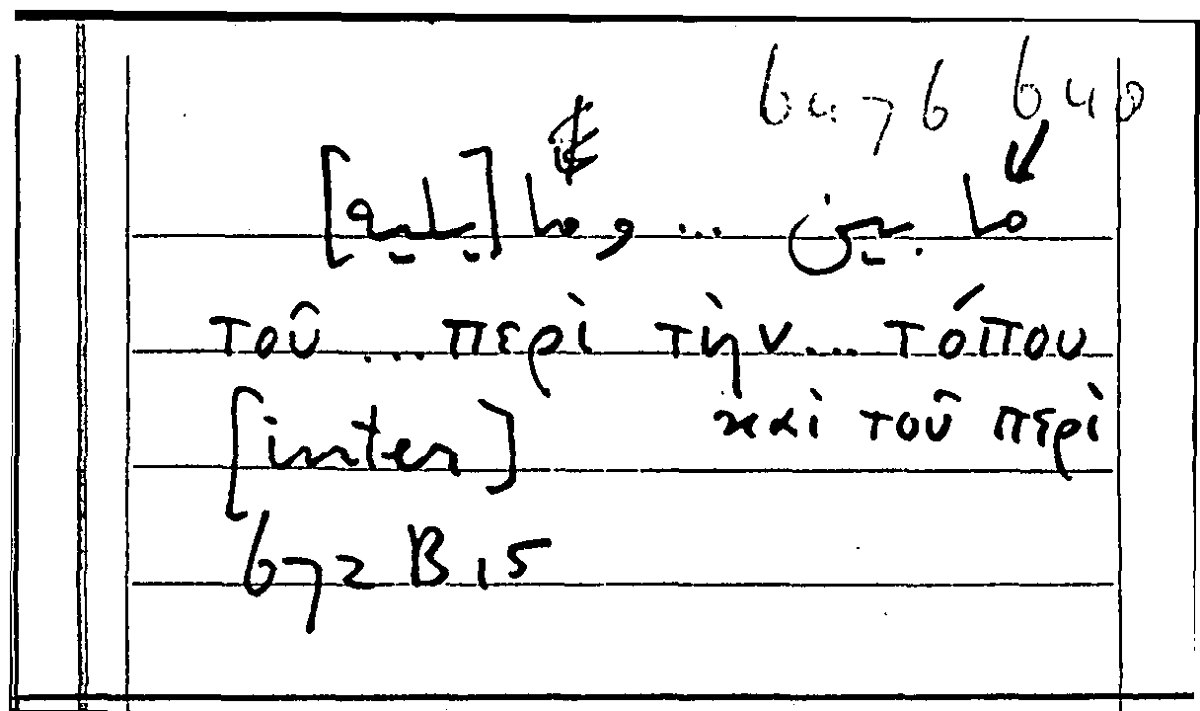 ما بين ... وما [يليه]
τοῦ ... περὶ τὴν ... τόπου
καὶ τοῦ περὶ
[inter]
672 B 15